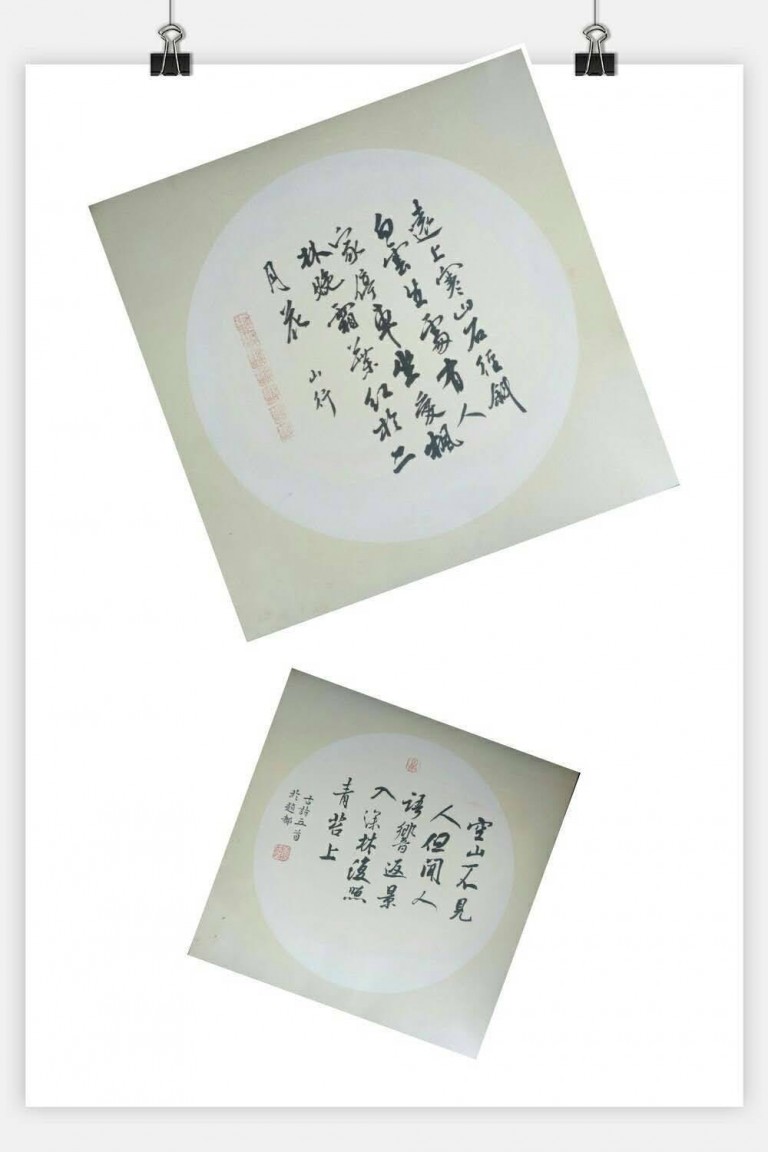 遠上寒山石徑斜
白雲生處有人
家停車坐愛楓
林晚霜葉紅於二
月花
山行
空山不見
人但聞人
語響返景
入深林復照
青苔上
古詩五首
於趙都